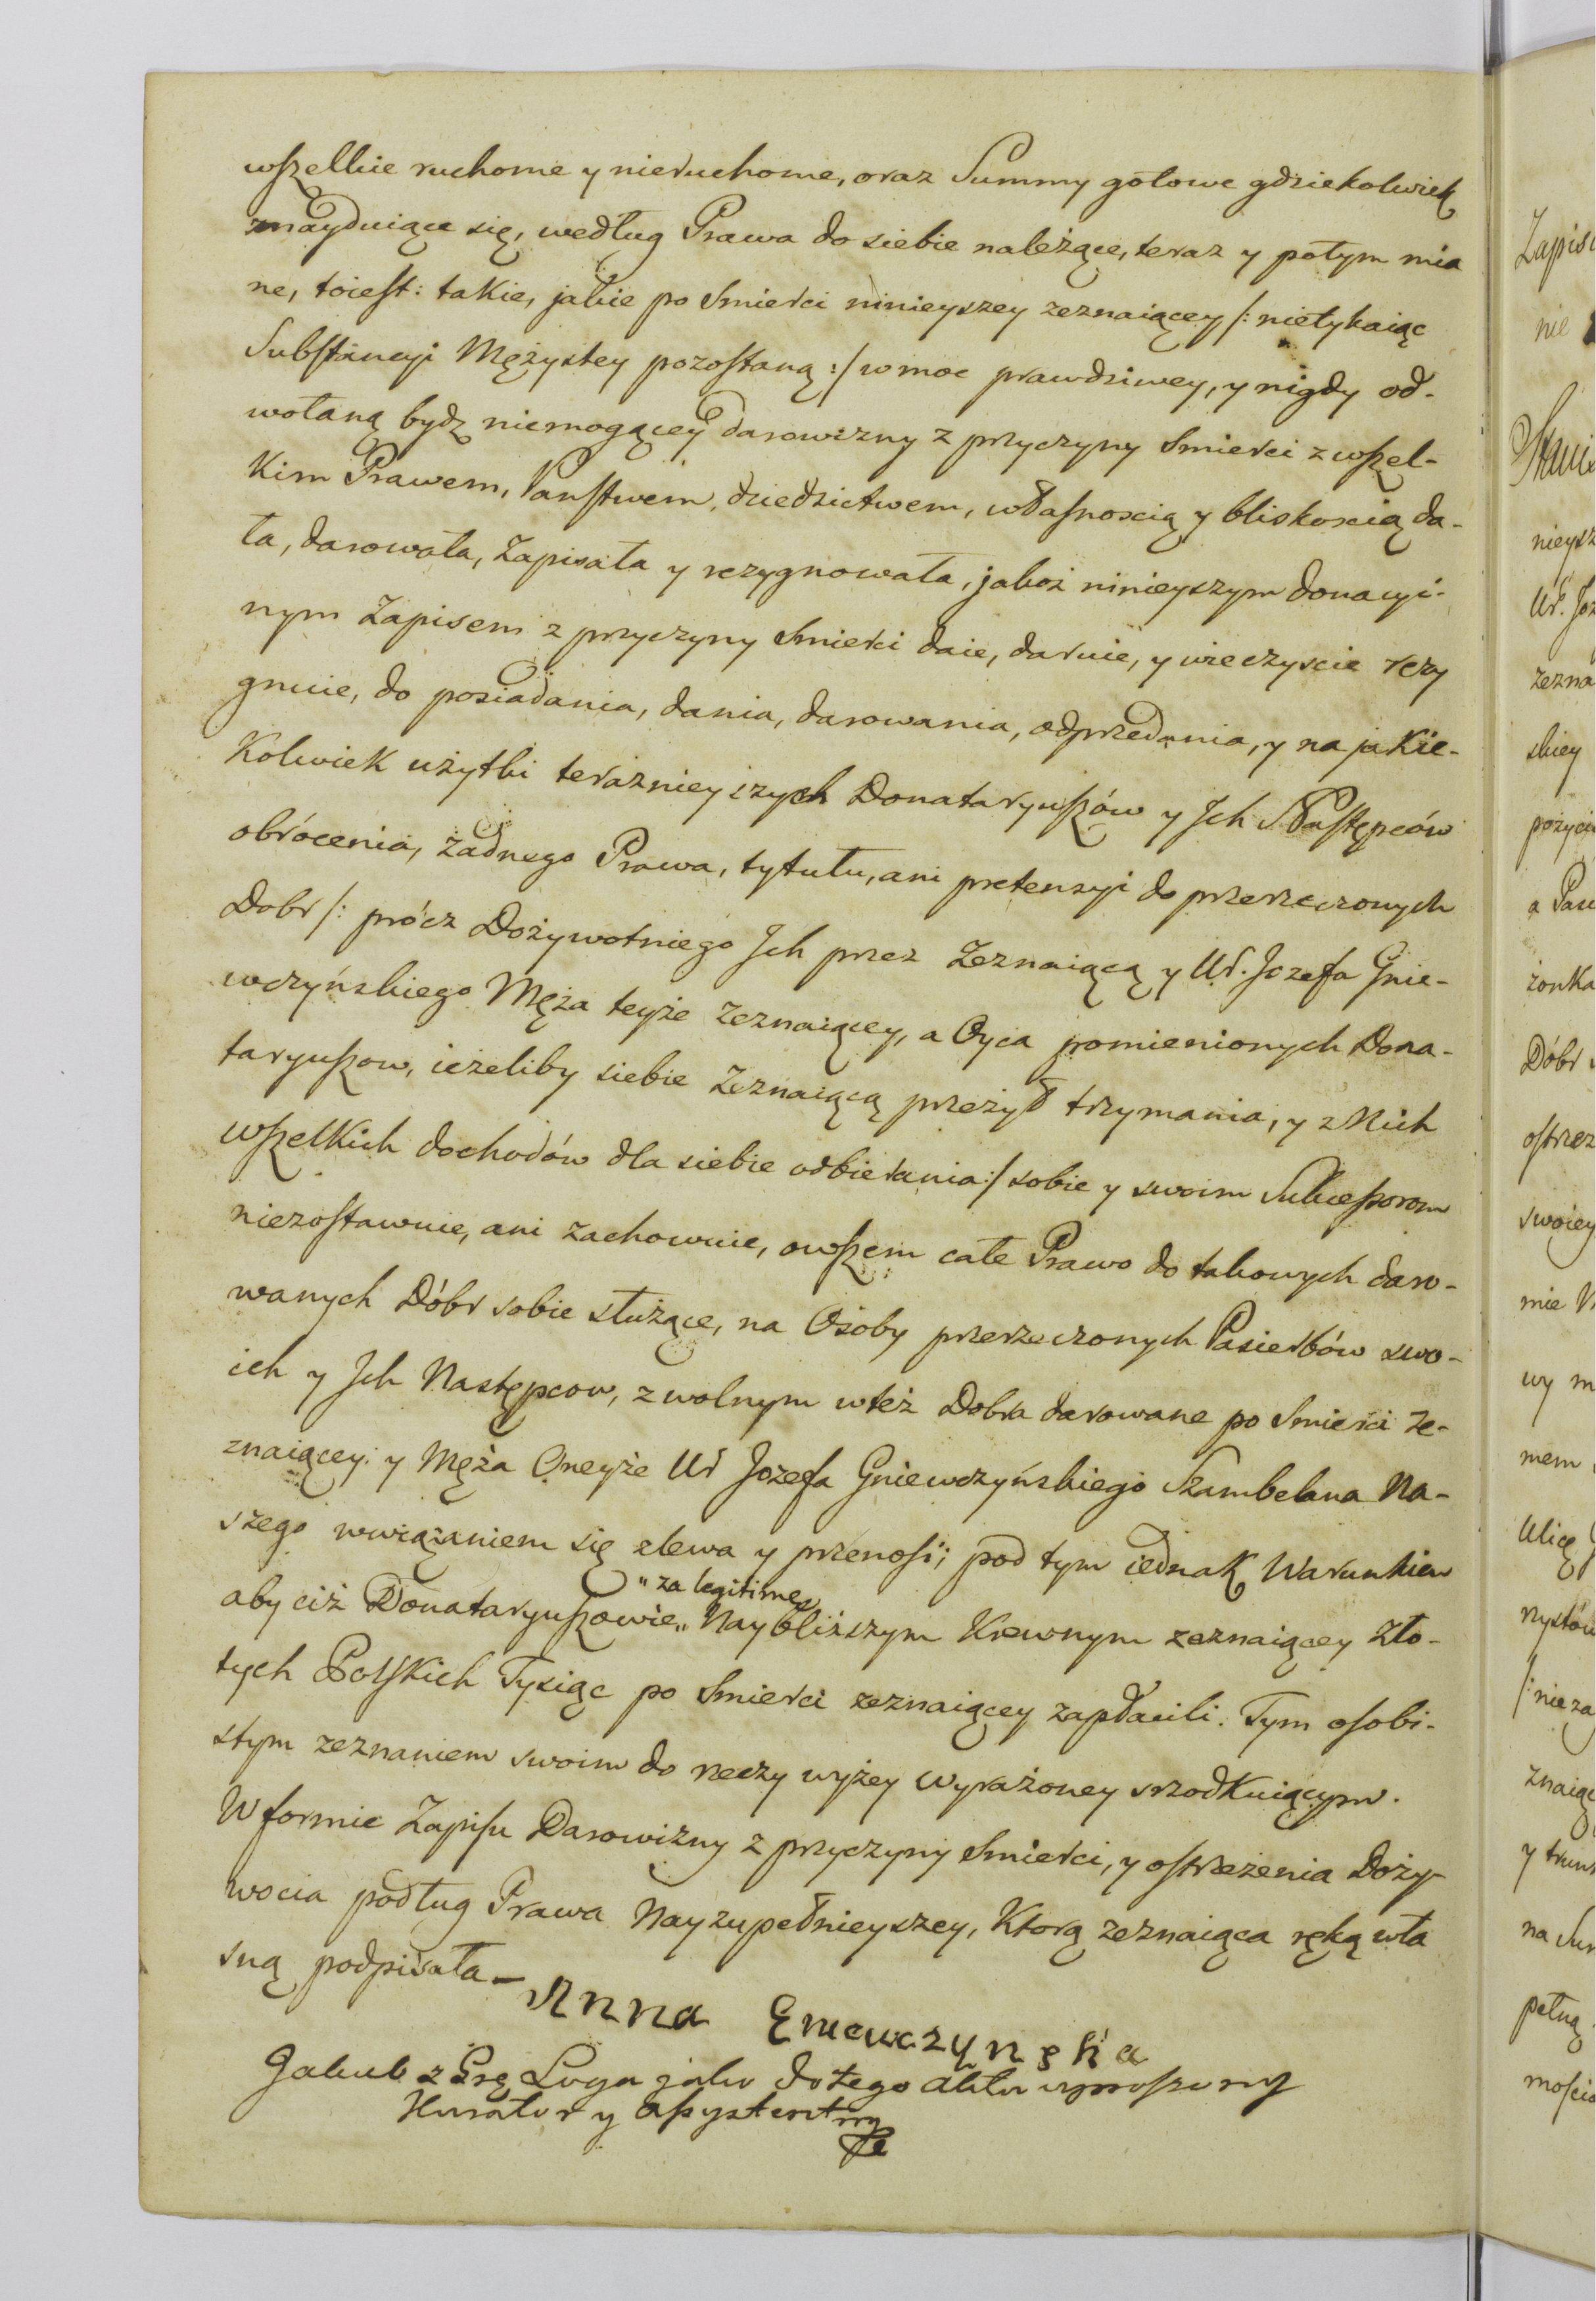 wszelkie ruchome y nieruchome, oraz Summy gotowe gdziekolwiek
znayduiące się, według Prawa do siebie należące, teraz y potym mia
ne, toiest: takie, jakie po Smierci ninieyszey zeznaiącey /: nietykaiąc
Substancyi Mężystey pozostaną :/ w moc prawdziwey, y nigdy od-
wołaną bydz niemogącey darowizny z przyczyny Smierci z wszel-
kim Prawem, Panstwem, dziedzictwem, własnoscią y bliskoscią da-
ła, darowała, Zapisała y rezygnowała, jakoż ninieyszym donacyi-
nym Zapisem z przyczyny Smierci daie, daruie, y wieczyscie rezy
gnuie, do posiadania, dania, darowania, odprzedania, y na jakie-
kolwiek użytki teraznieyszych Donataryuszów y Jch Następców
obrócenia, żadnego Prawa, tytułu, ani pretensyi do przerzeczonych
Dobr /: prócz Dożywotniego Jch przez Zeznaiącą y Ur. Jozefa Gnie-
wczyńskiego Męża teyże zeznaiącey, a Oyca pomienionych Dona-
taryuszow, ieżeliby siebie Zeznaiącą przeżył trzymania, y z Nich
wszelkich dochodów dla siebie odbierania :/ sobie y swoim Sukcessorom
niezostawuie, ani zachowuie, owszem całe Prawo do takowych daro-
wanych Dóbr sobie służące, na Osoby przerzeczonych Pasierbów swo-
ich y Jch Następcow, z wolnym w też Dobra darowane po Smierci ze-
znaiącey y Męża Oneyże Ur Jozefa Gniewczyńskiego Szambelana Na-
szego wwiązaniem się zlewa y przenosi; pod tym iednak Warunkiem
aby ciż Donataryuszowie „ Naybliższym Krewnym zeznaiącey Zło-
„ za legitimę
tych Polskich Tysiąc po Smierci zeznaiącey zapłacili. Tym osobi-
stym zeznaniem swoim do rzeczy wyżey wyrażoney srzodkuiącym.
W formie Zapisu Darowizny z przyczyny Smierci, y ostrzeżenia Doży-
wocia podług Prawa Nayzupełnieyszey, ktorą zeznaiąca ręką wła
sną podpisała –
Anna Gniewczynska
Jakub z Ługa jako do tego aktu uproszony
Kurator y assystent
Zapis
nie
Stani
nieysz
Ur. Joz
zezna
skiey
pożyci
a Pan
żonka
Dóbr
ostrzez
swoiey
mie
wy m
mem
Ulicę
nystów
/: nie za
znaiąc
y trun
na Sum
pełną
mości